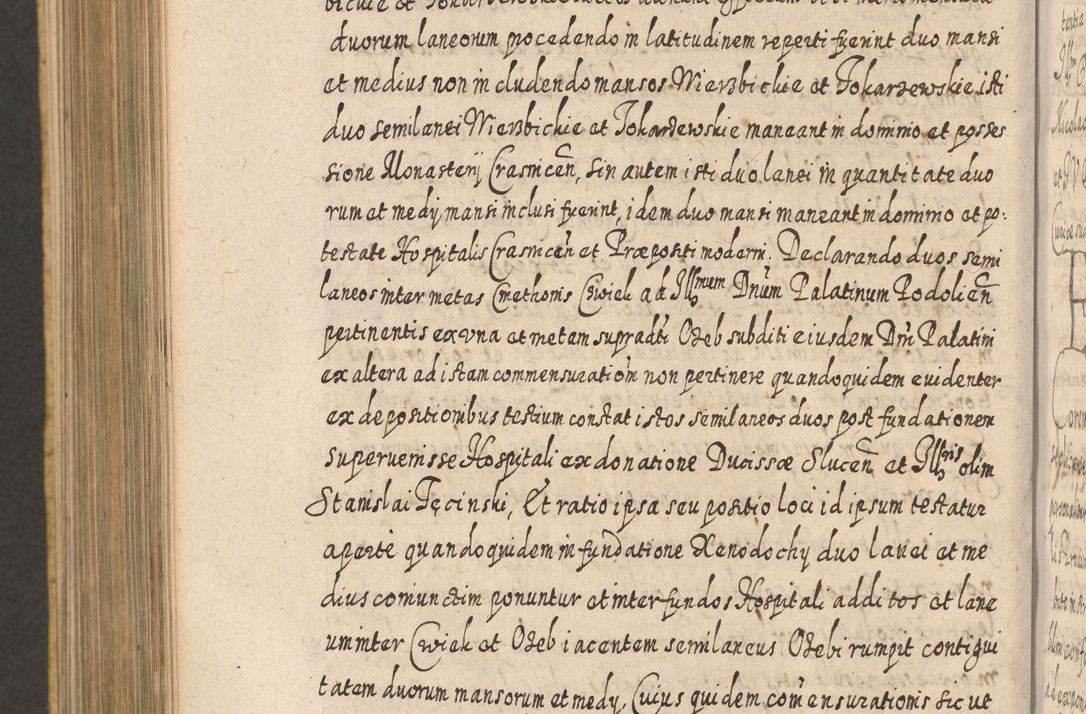 duorum laneorum procedendo in latitudinem reperti fuerint duo mansi
et medius non in cludendo mansos Wierzbickie et Tokarzewskie isti
duo semilanei Wierzbickie et Tokarzewskie maneant in dominio et posses
sione Monasterij Crasnicen̄, sin autem isti duo lanei in quantitate duo
rum et medij mansi inclusi fuerint, idem duo mansi maneant in dominio et po:
testate Hospitalis Crasnicen̄ et Præpositi moderni. Declarando duos semi
laneos inter metas Cmethonis Cwiek ad Illmum Dnum Palatinum Podolien̄
pertinentis ex vna et metam supradti Ozeb subditi eiusdem Dni Palatini
ex altera ad istam commensurationem non pertinere quandoquidem euidenter
ex depositionibus testium constat istos semilaneos duos post fundationem
superuenisse Hospitali ex donatione Ducissæ Slucen̄ et Illris olim
Stanislai Tęcinski, Et ratio ipsa seu positio loci id ipsum testatur
aperte quandoquidem in fundatione Xenodochy duo lanei et me
dius coniunctim ponuntur et inter fundos Hospitali additos et lane
um inter Cwiek et Ozeb iacentem semilaneus Ozebi rumpit contigui
tatem duorum mansorum et medy. Cuius quidem com̄ensurationis sicut